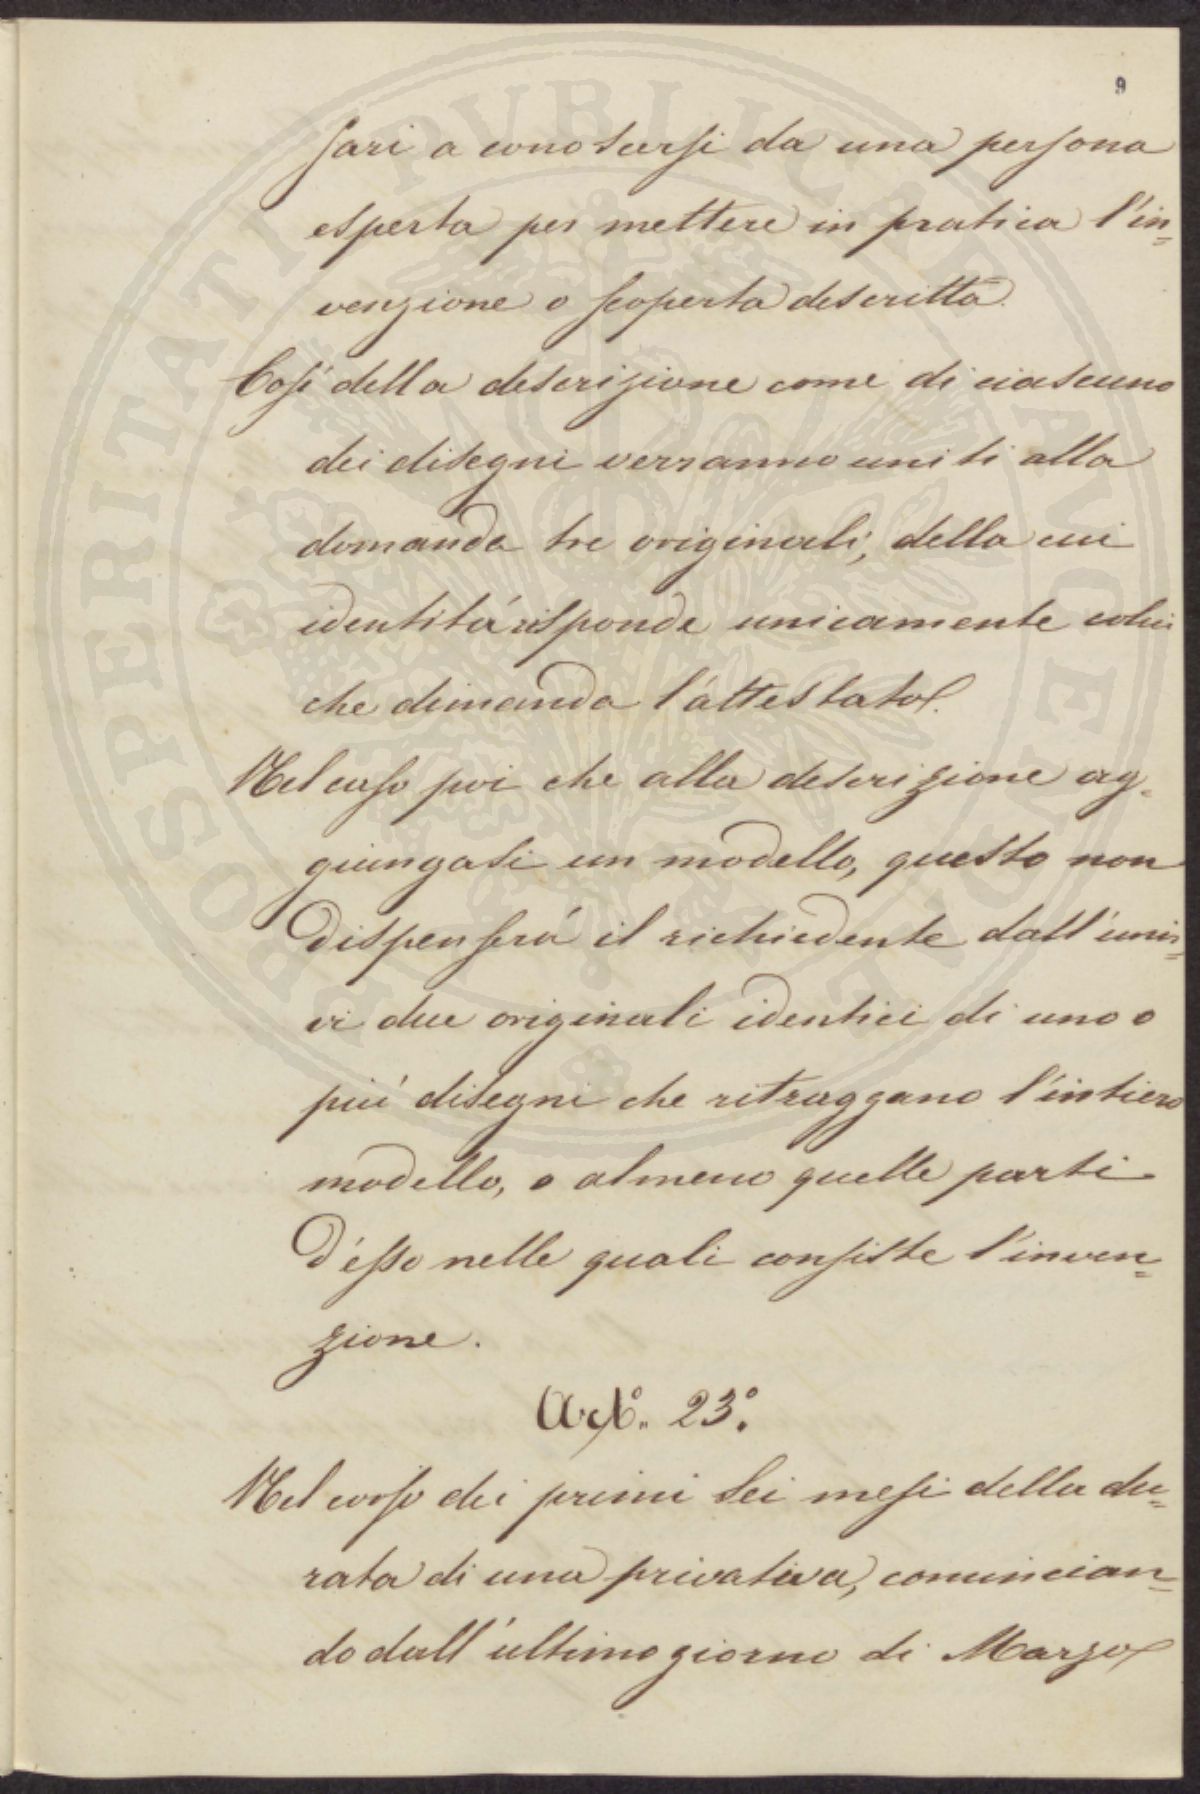 9
sari a conoscersi da una persona
esperta per mettere in pratica l'in=
venzione o scoperta descritta.
Così della descrizione come di ciascuno
dei disegni verranno uniti alla
domanda tre originali, della cui
identità risponde unicamente colui
che dimanda l'attestato.
Nel caso poi che alla descrizione ag=
giungasi un modello, questo non
dispenserà il richiedente dall'unir=
vi due originali identici di uno o
più disegni che ritraggano l'intiero
modello, o almeno quelle parti
d'esso nelle quali consiste l'inven=
zione.
Art.° 23.°
Nel corso dei primi sei mesi della du=
rata di una privativa, comincian=
do dall'ultimo giorno di Marzo
PROSPERITATI PUBLICAE AVGENDAE